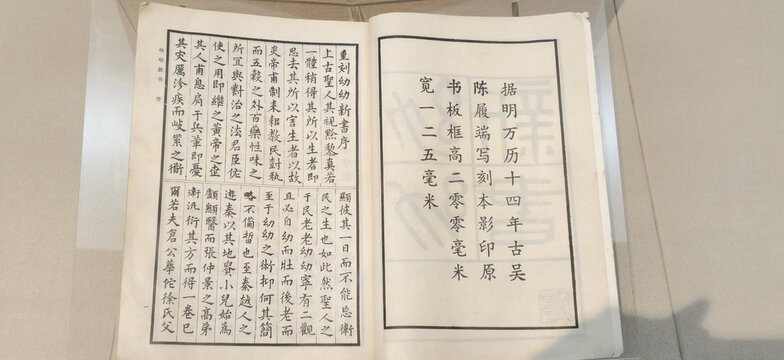 据明万历十四年古吴
陈履端写刻本影印原
书板框高二零零毫米
宽一二五毫米
重刻幼幼新書序
上古聖人其視黔黎真若
一體稍得其所以生者即
思去其所以害生者以故
炎帝甫制耒耜教民
而五穀之外百藥性味之
所宜與對治之法君臣佐
使之用即繼之黄帝之
其人甫息肩于兵革即憂
其灾厲沴疾而岐之衛
顯彼其一日而不能忘衛
民之生也如此然聖人之
于民老老幼幼寧有二觀
且必自幼而壯而後老而
至于幼幼之術抑何其簡
略不備也至秦越人之
遊秦以其地小兒始為
顱顖醫而張仲景之高弟
衛汛衍其方而得一卷已
爾若夫倉公華佗徐氏父
幼幼新書 序